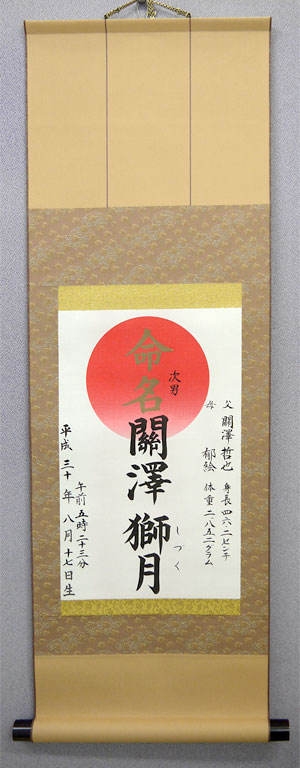 父 關澤 哲也
母 郁絵
身長 四六.二センチ
体重 二八五二グラム
次男
命名 關澤 獅月
しづく
午前 五時 二十三分
平成 三十 年 八月 十七日生